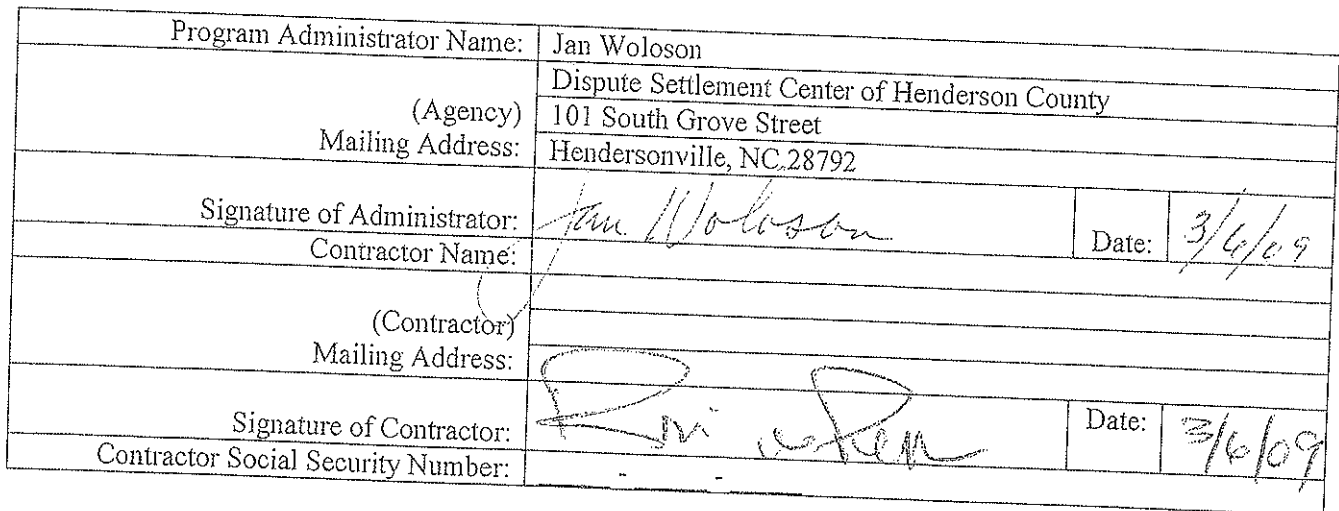 Program Administrator Name: Jan Woloson
Dispute Settlement Center of Henderson County
(Agency) 101 South Grove Street
Mailing Address: Hendersonville, NC 28792
Signature of Administrator: Jan Woloson Date: 3/6/09
Contractor Name:
(Contractor)
Mailing Address:
Signature of Contractor: Date: 3/6/09
Contractor Social Security Number: - -